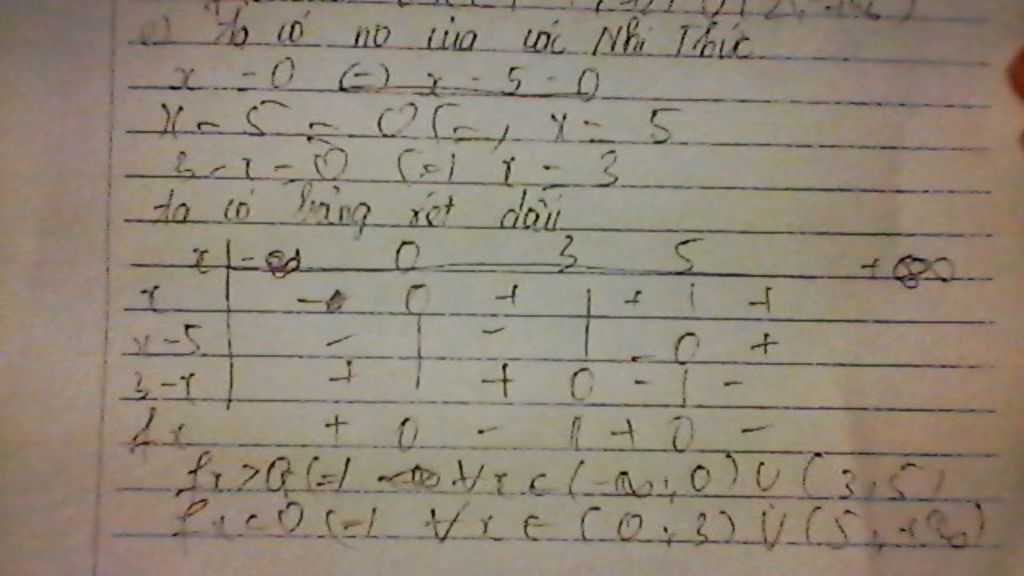 e) Ta có no của các Nhị Thức
x = 0 (=) x - 5 = 0
x - 5 = 0 (=) x = 5
3 - x = 0 (=) x = 3
ta có bảng xét dấu
x | -∞ 0 3 5 +∞
x | - 0 + | + | +
x-5 | - | - | - 0 +
3-x | + | + 0 - | -
fx + 0 - || + 0 -
fx > 0 (=) ∀x ∈ (-∞; 0) ∪ (3; 5)
fx < 0 (=) ∀x ∈ (0; 3) ∪ (5; +∞)